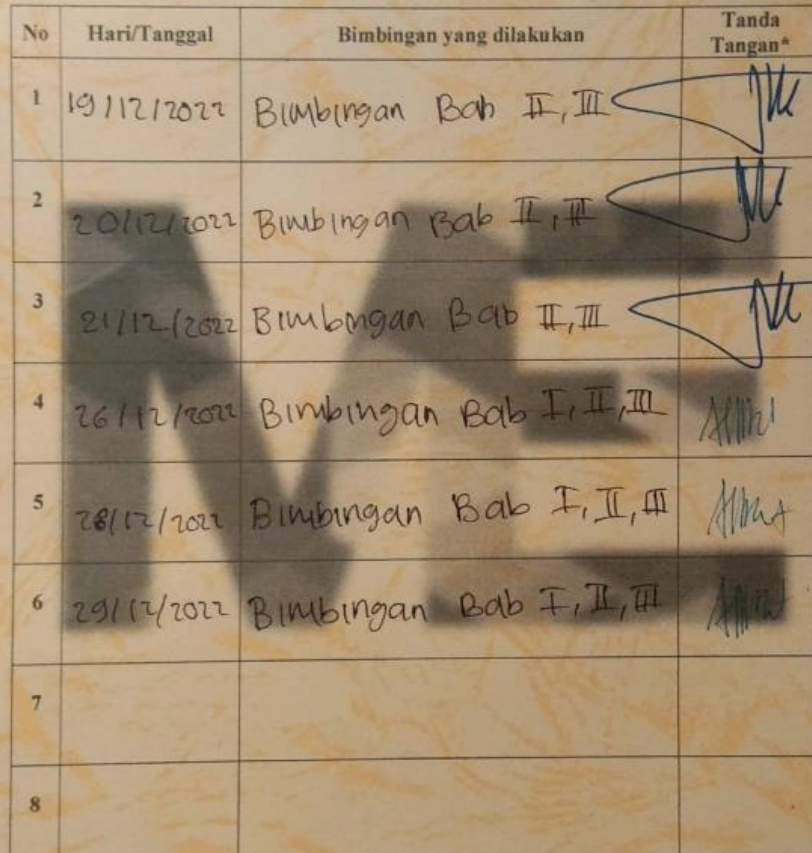 No Hari/Tanggal Bimbingan yang dilakukan Tanda
Tangan*
1 19/12/2022 Bimbingan Bab II, III
2 20/12/2022 Bimbingan Bab II, III
3 21/12/2022 Bimbingan Bab II, III
4 26/12/2022 Bimbingan Bab I, II, III
5 28/12/2022 Bimbingan Bab I, II, III
6 29/12/2022 Bimbingan Bab I, II, III
7
8